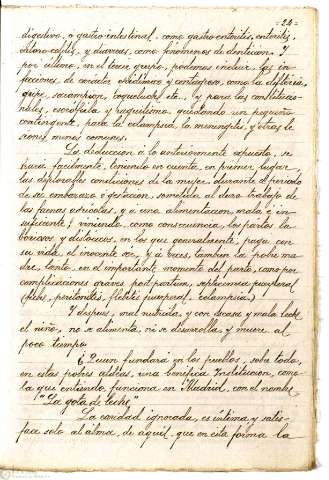 -24-
digestivo, o gastro-intestinal, como gastro enteritis, enteritis,
entero-colitis, y diarreas, como fenómenos de dentición. Y
por último, en el tercer grupo, podemos incluir, las in-
fecciones, de carácter epidémico y contagioso, como la difteria,
gripe, sarampion, coqueluche, etc., y para las constitucio-
nales, escrófula y raquitismo, quedando un pequeño
contingente, para la eclampsia, la meningitis, y otras le-
siones menos comunes.
La deducción a lo anteriormente expuesto, se
hará facilmente, teniendo en cuenta, en primer lugar,
las deplorables condiciones de la mujer, durante el periodo
de su embarazo o gestación, sometida al duro trabajo de
las faenas agrícolas, y á una alimentación, mala e in-
suficiente; viniendo, como consecuencia, los partos la-
boriosos y distócicos, en los que generalmente, paga con
su vida, el inocente ser, y á veces, tambien la pobre ma-
dre, tanto, en el importante momento del parto, como por
complicaciones graves post-partum, septicemia puerperal
(fiebre, peritonitis, flebitis puerperal, eclampsia).
Y despues, mal nutrida, y con escasa y mala leche,
el niño, no se alimenta, ni se desarrolla, y muere al
poco tiempo.
¿Quien fundará en los pueblos, sobre todo,
en estas pobres aldeas, una benéfica Institución, como
la que entiendo, funciona en Madrid, con el nombre
"La gota de leche"
La caridad ignorada, es íntima y satis-
face solo al alma, de aquél, que en esta forma la